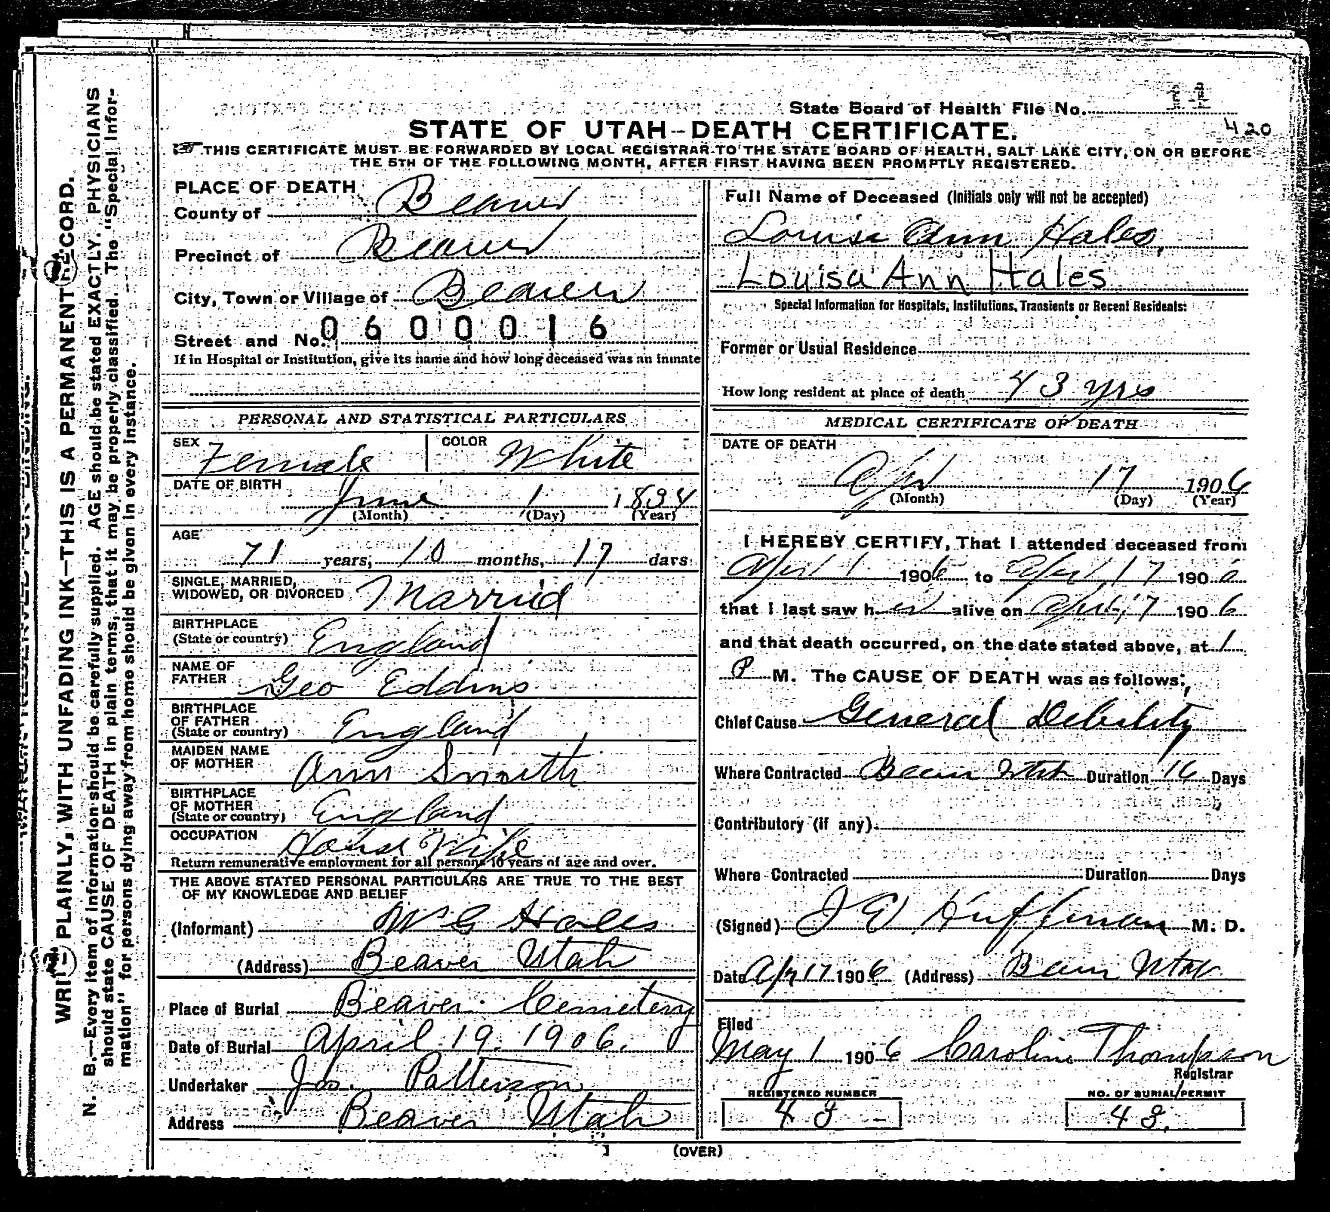 State Board of Health File No.
420
STATE OF UTAH—DEATH CERTIFICATE.
THIS CERTIFICATE MUST BE FORWARDED BY LOCAL REGISTRAR TO THE STATE BOARD OF HEALTH, SALT LAKE CITY, ON OR BEFORE
THE 5TH OF THE FOLLOWING MONTH, AFTER FIRST HAVING BEEN PROMPTLY REGISTERED.
PLACE OF DEATH
County of Beaver
Precinct of Beaver
City, Town or Village of Beaver
Street and No. 0600016
If in Hospital or Institution, give its name and how long deceased was an inmate
PERSONAL AND STATISTICAL PARTICULARS
SEX Female COLOR White
DATE OF BIRTH June 1 1834
(Month) (Day) (Year)
AGE
71 years, 10 months, 17 days
SINGLE, MARRIED,
WIDOWED, OR DIVORCED Married
BIRTHPLACE
(State or country) England
NAME OF
FATHER Geo Eddins
BIRTHPLACE
OF FATHER
(State or country) England
MAIDEN NAME
OF MOTHER Ann Smith
BIRTHPLACE
OF MOTHER
(State or country) England
OCCUPATION House Wife
Return remunerative employment for all persons 10 years of age and over.
THE ABOVE STATED PERSONAL PARTICULARS ARE TRUE TO THE BEST
OF MY KNOWLEDGE AND BELIEF
(Informant) Wm G Hales
(Address) Beaver Utah
Place of Burial Beaver Cemetery
Date of Burial April 19, 1906.
Undertaker Jos. Patterson
Address Beaver Utah
Full Name of Deceased (Initials only will not be accepted)
Louisa Ann Hales,
Louisa Ann Hales
Special Information for Hospitals, Institutions, Transients or Recent Residents:
Former or Usual Residence
How long resident at place of death 43 yrs
MEDICAL CERTIFICATE OF DEATH
DATE OF DEATH
Apr 17 1906
(Month) (Day) (Year)
I HEREBY CERTIFY, That I attended deceased from
April 1 1906 to April 17 1906
that I last saw her alive on April 17 1906
and that death occurred, on the date stated above, at 1
P M. The CAUSE OF DEATH was as follows:
Chief Cause General Debility
Where Contracted Beaver Utah Duration 16 Days
Contributory (if any)
Where Contracted Duration Days
(Signed) J E Huffman M. D.
Date Apr 17 1906 (Address) Beaver Utah
Filed
May 1 1906 Caroline Thompson
Registrar
REGISTERED NUMBER
43
NO. OF BURIAL PERMIT
43.
(OVER)
WRITE PLAINLY, WITH UNFADING INK—THIS IS A PERMANENT RECORD.
N. B.—Every item of information should be carefully supplied. AGE should be stated EXACTLY. PHYSICIANS
should state CAUSE OF DEATH in plain terms, that it may be properly classified. The "Special Infor-
mation" for persons dying away from home should be given in every instance.